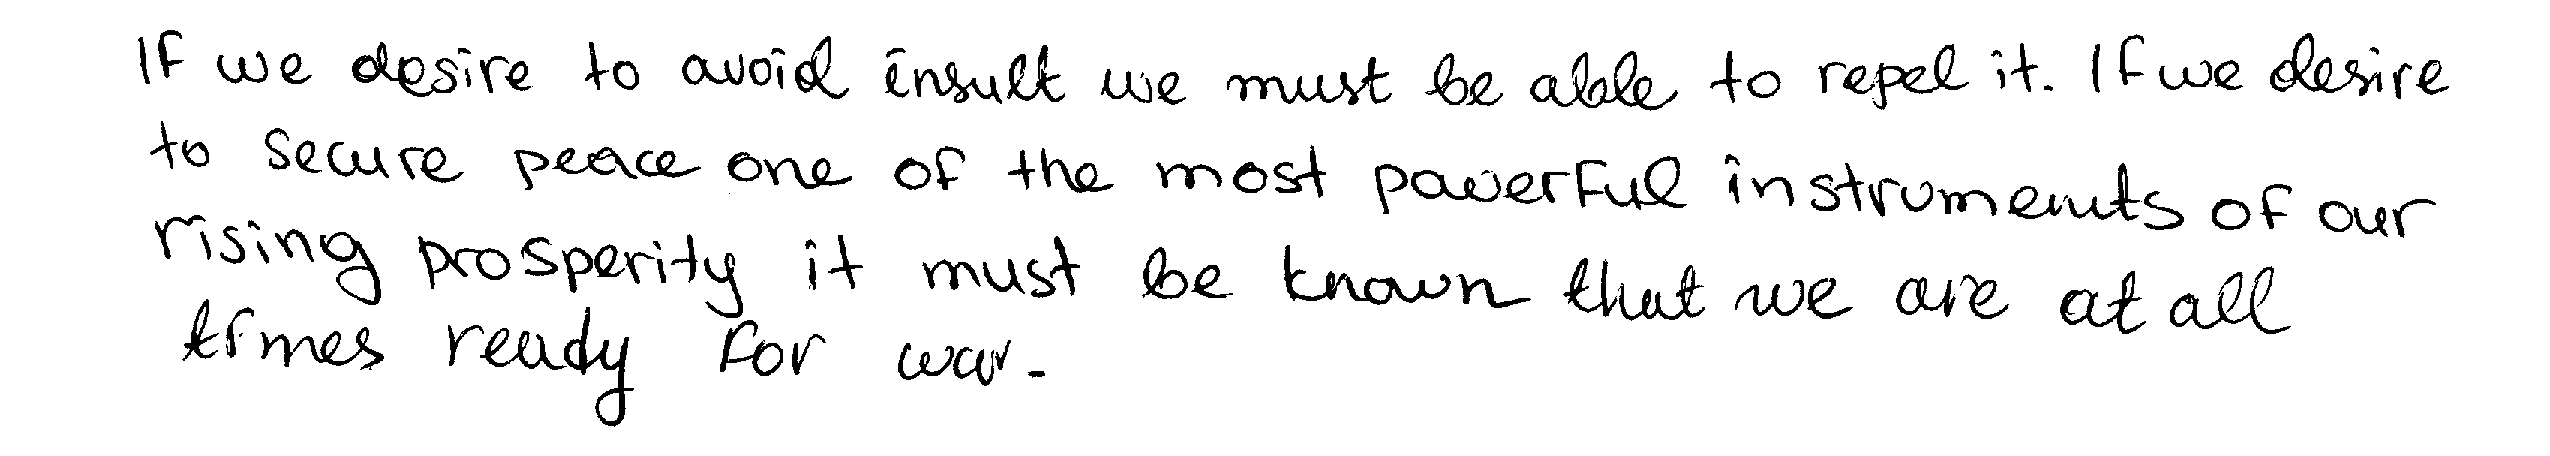 If we desire to avoid insult we must be able to repel it. If we desire
to secure peace one of the most powerful instruments of our
rising prosperity it must be known that we are at all
times ready for war.